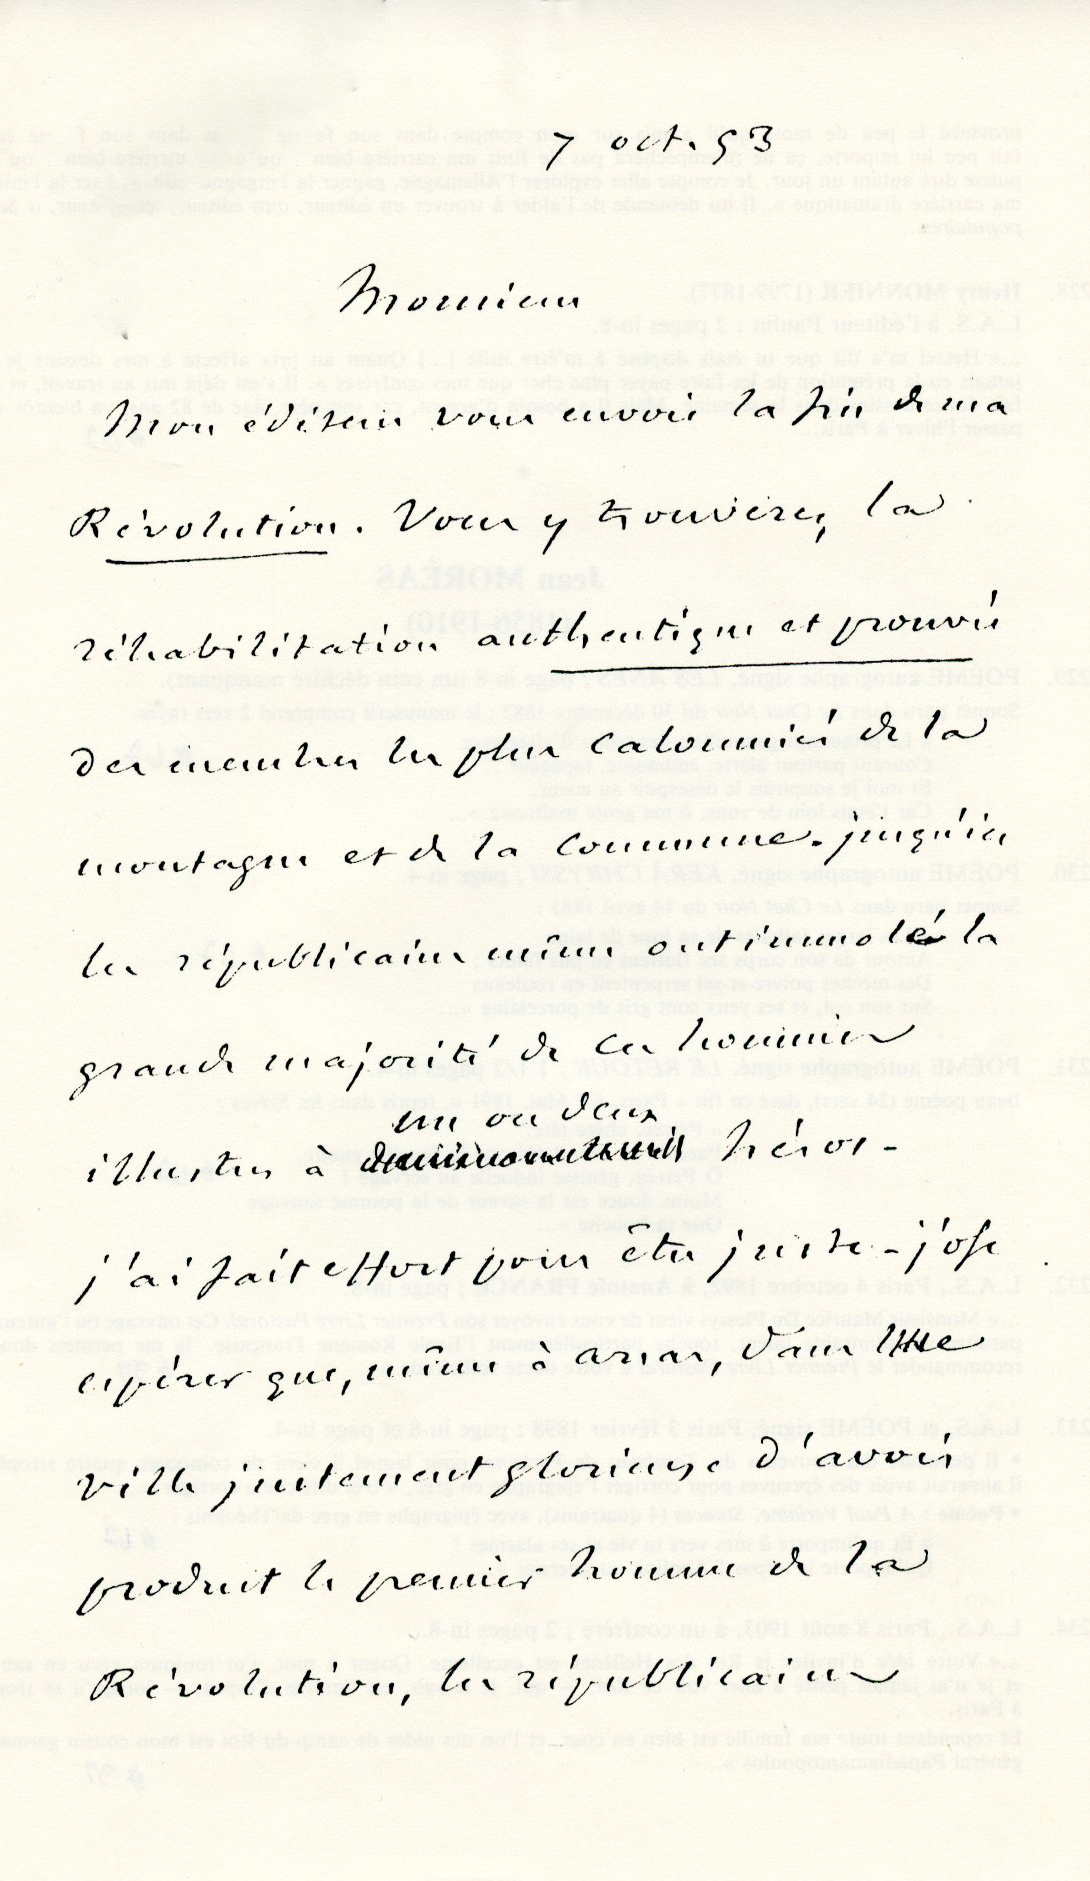 7 oct. 53
Monsieur
Mon éditeur vous envoie la fin de ma
Révolution. Vous y trouverez la
réhabilitation authentique et prouvée
des membres les plus calomniés de la
montagne et de la Commune. jusqu'ici
les républicains même ont immolé la
grande majorité de ces hommes
un ou deux
illustres à héros -
j'ai fait effort pour être juste - j'ose
espérer que, même à arras, dans cette
ville justement glorieuse d'avoir
produit le premier homme de la
Révolution, les républicains